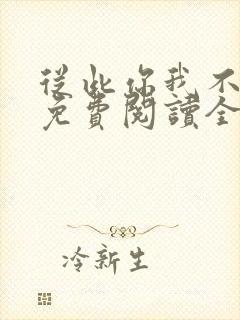 從此你我不
免費閱讀全
冷新生